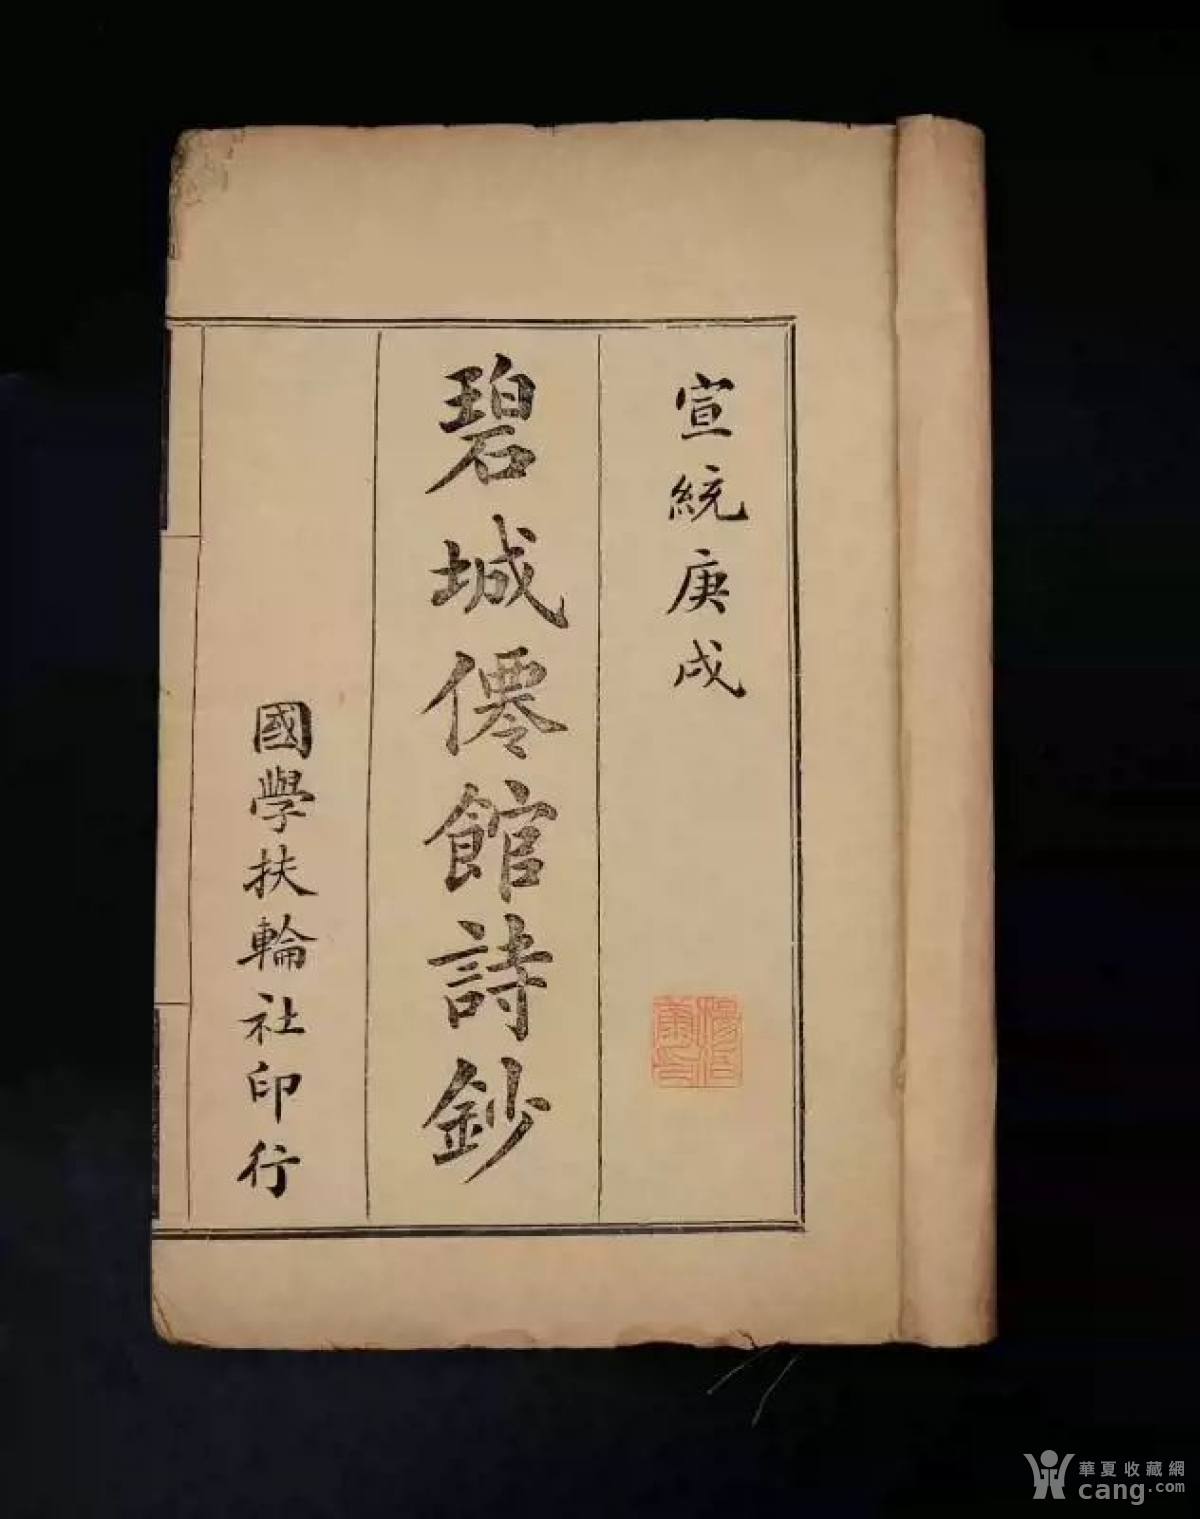 宣統庚戌
碧城僊館詩鈔
國學扶輪社印行
華夏收藏網
cang.com